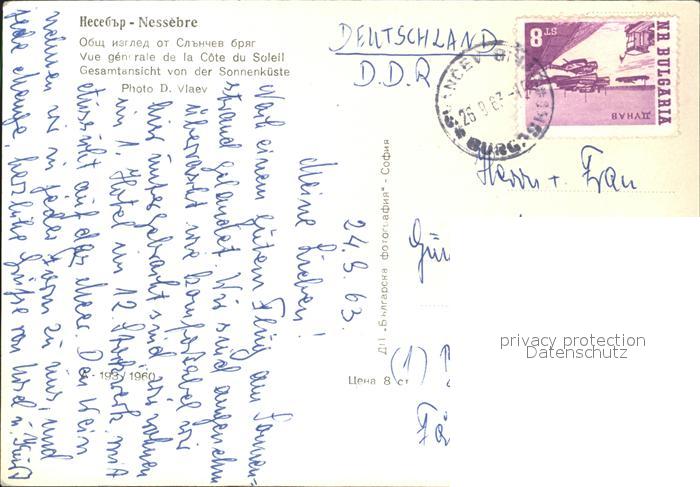 Несебър - Nessèbre
Общ изглед от Слънчев бряг
Vue générale de la Côte du Soleil
Gesamtansicht von der Sonnenküste
Photo D. Vlaev
DEUTSCHLAND
D.D.R
8 ST
NR BULGARIA
ДУНАВ
26 8 63
BURGAS
Herrn + Frau
Gün
(1)
24.8.63.
Meine Lieben!
Nach einem guten Flug am Sonnen-
strand gelandet. Wir sind angenehm
überrascht wie komfortabel wir
hier untergebracht sind. Wir wohnen
im 1. Hotel im 12. Stockwerk mit
Aussicht auf das Meer. Den Wein
nehmen wir in jeder Form zu uns, und
herzliche Grüße von
ДП „Българска фотография" - София
А - 193/1960
Цена 8 ст
privacy protection
Datenschutz